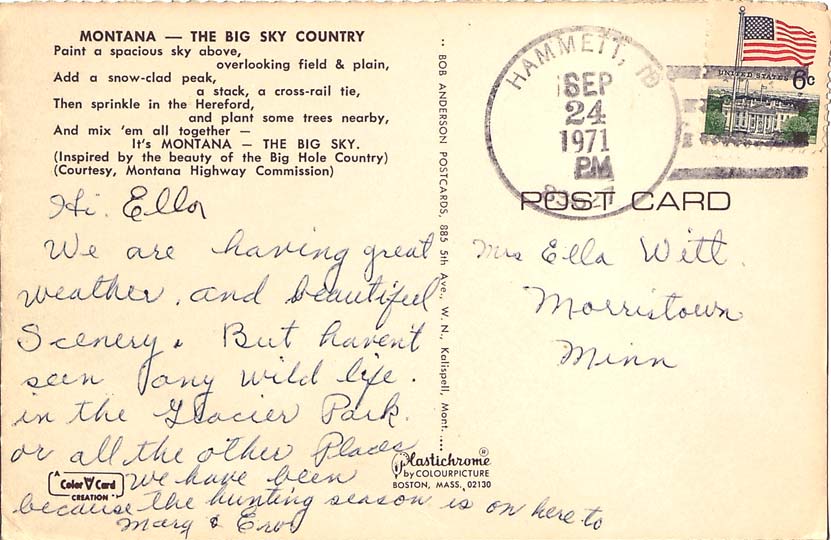 MONTANA — THE BIG SKY COUNTRY
Paint a spacious sky above,
overlooking field & plain,
Add a snow-clad peak,
a stack, a cross-rail tie,
Then sprinkle in the Hereford,
and plant some trees nearby,
And mix 'em all together —
It's MONTANA — THE BIG SKY.
(Inspired by the beauty of the Big Hole Country)
(Courtesy, Montana Highway Commission)
Hi. Ella
We are having great
weather. and beautiful
Scenery. But haven't
seen any wild life.
in the Glacier Park.
or all the other Places
we have been
because the hunting season is on here to
Marg & Erv
A
Color Card
CREATION
BOB ANDERSON POSTCARDS, 885 5th Ave., W. N., Kalispell, Mont.
Plastichrome®
by COLOURPICTURE
BOSTON, MASS. 02130
HAMMETT, ID
SEP
24
1971
PM
83627
UNITED STATES 6c
POST CARD
Mrs Ella Witt.
Morristown
Minn